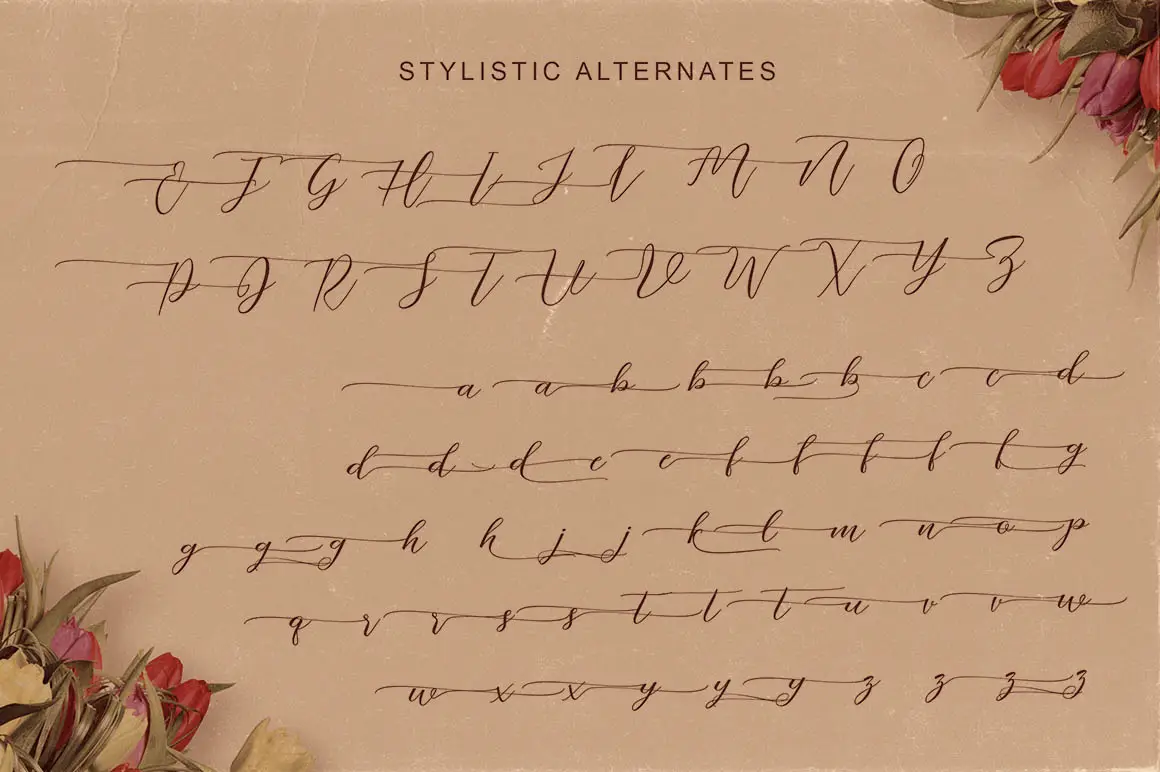 STYLISTIC ALTERNATES
E F G H I J L M N O
P Q R S T U V W X Y Z
a a b b b b c c d
d d d e e f f f f f g
g g g h h j j k l m n o p
q r r s s t t t u v v w
w x x y y y z z z z